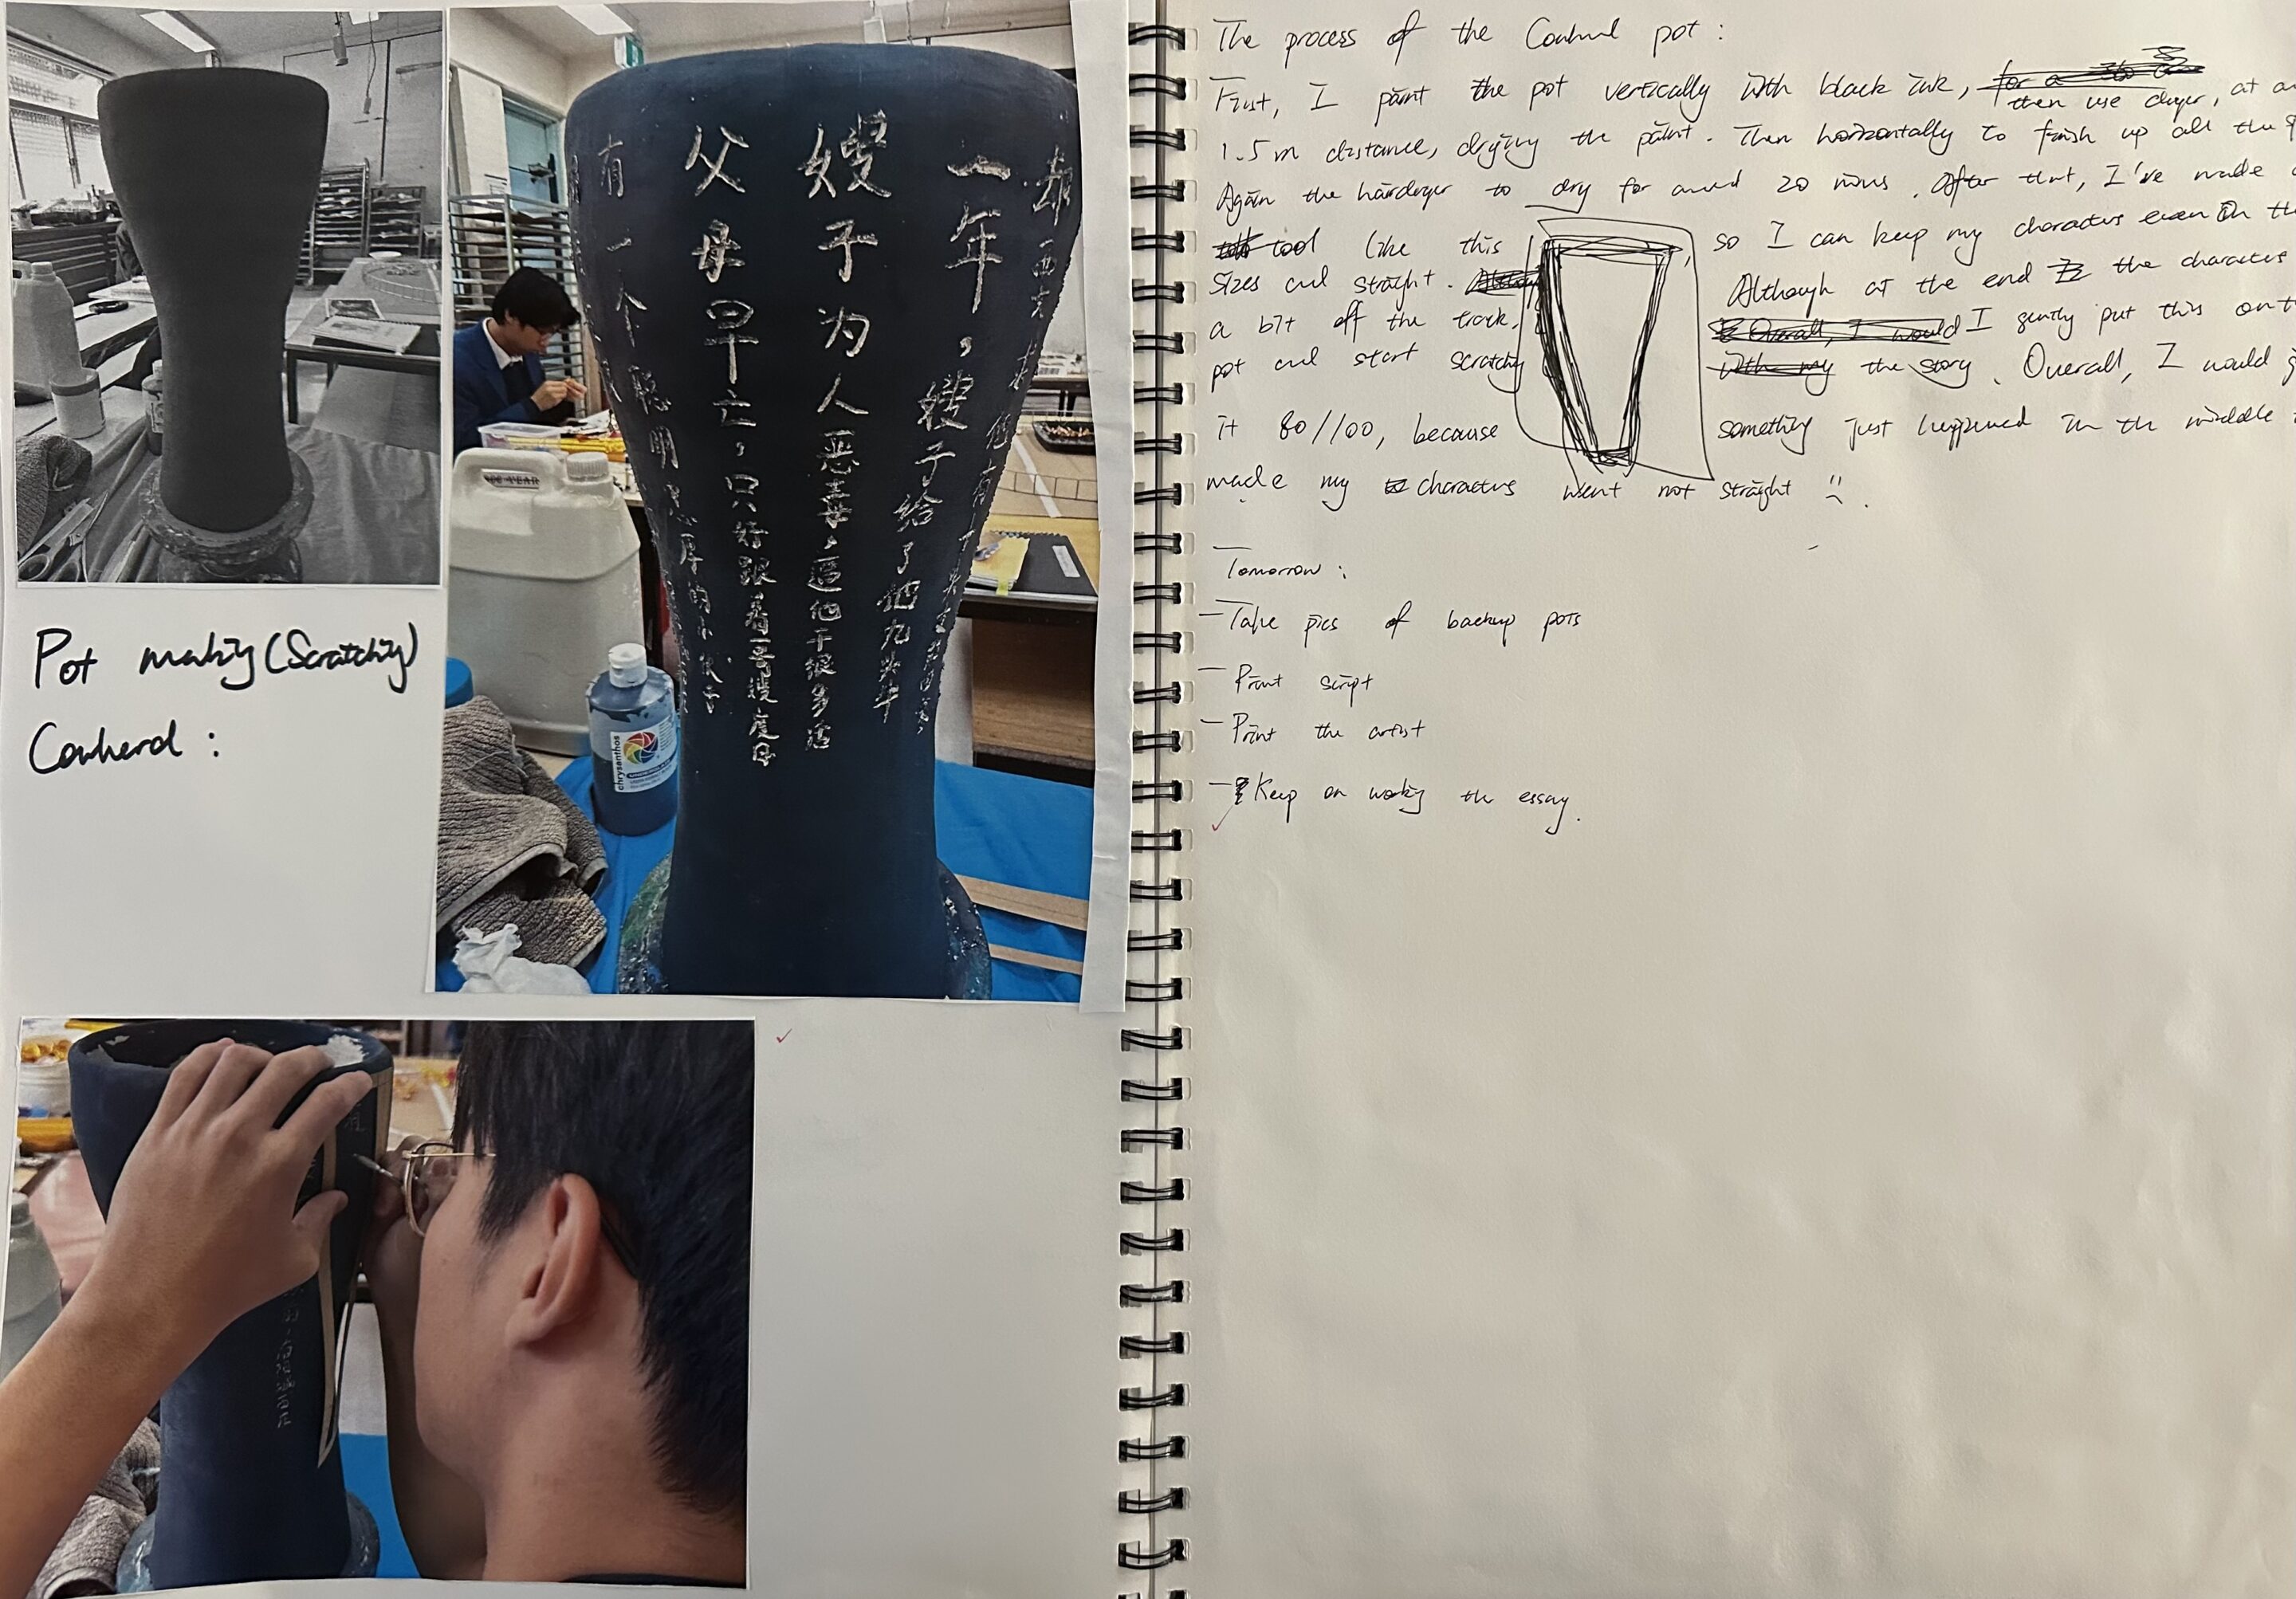 Pot making (Scratching)
Cowherd :
有一个聪明忠厚的小伙子
父母早亡，只好跟着哥嫂度日
嫂子为人恶毒，逼他干很多活
一年，嫂子给了他九头牛
却
chrysanthos
The process of the Cowherd pot :
First, I paint the pot vertically with black ink,
then use dryer, at an
1.5m distance, drying the paint. Then horizontally to finish up all the
Again the hairdryer to dry for around 20 mins. After that, I've made a
tool like this , so I can keep my characters even in the
sizes and straight. Although at the end the characters
a bit off the track, I gently put this on t
pot and start scratching the story. Overall, I would g
it 80/100, because something just happened in the middle
made my characters went not straight :(.
Tomorrow :
- Take pics of backup pots
- Print script
- Print the artist
- Keep on working the essay.